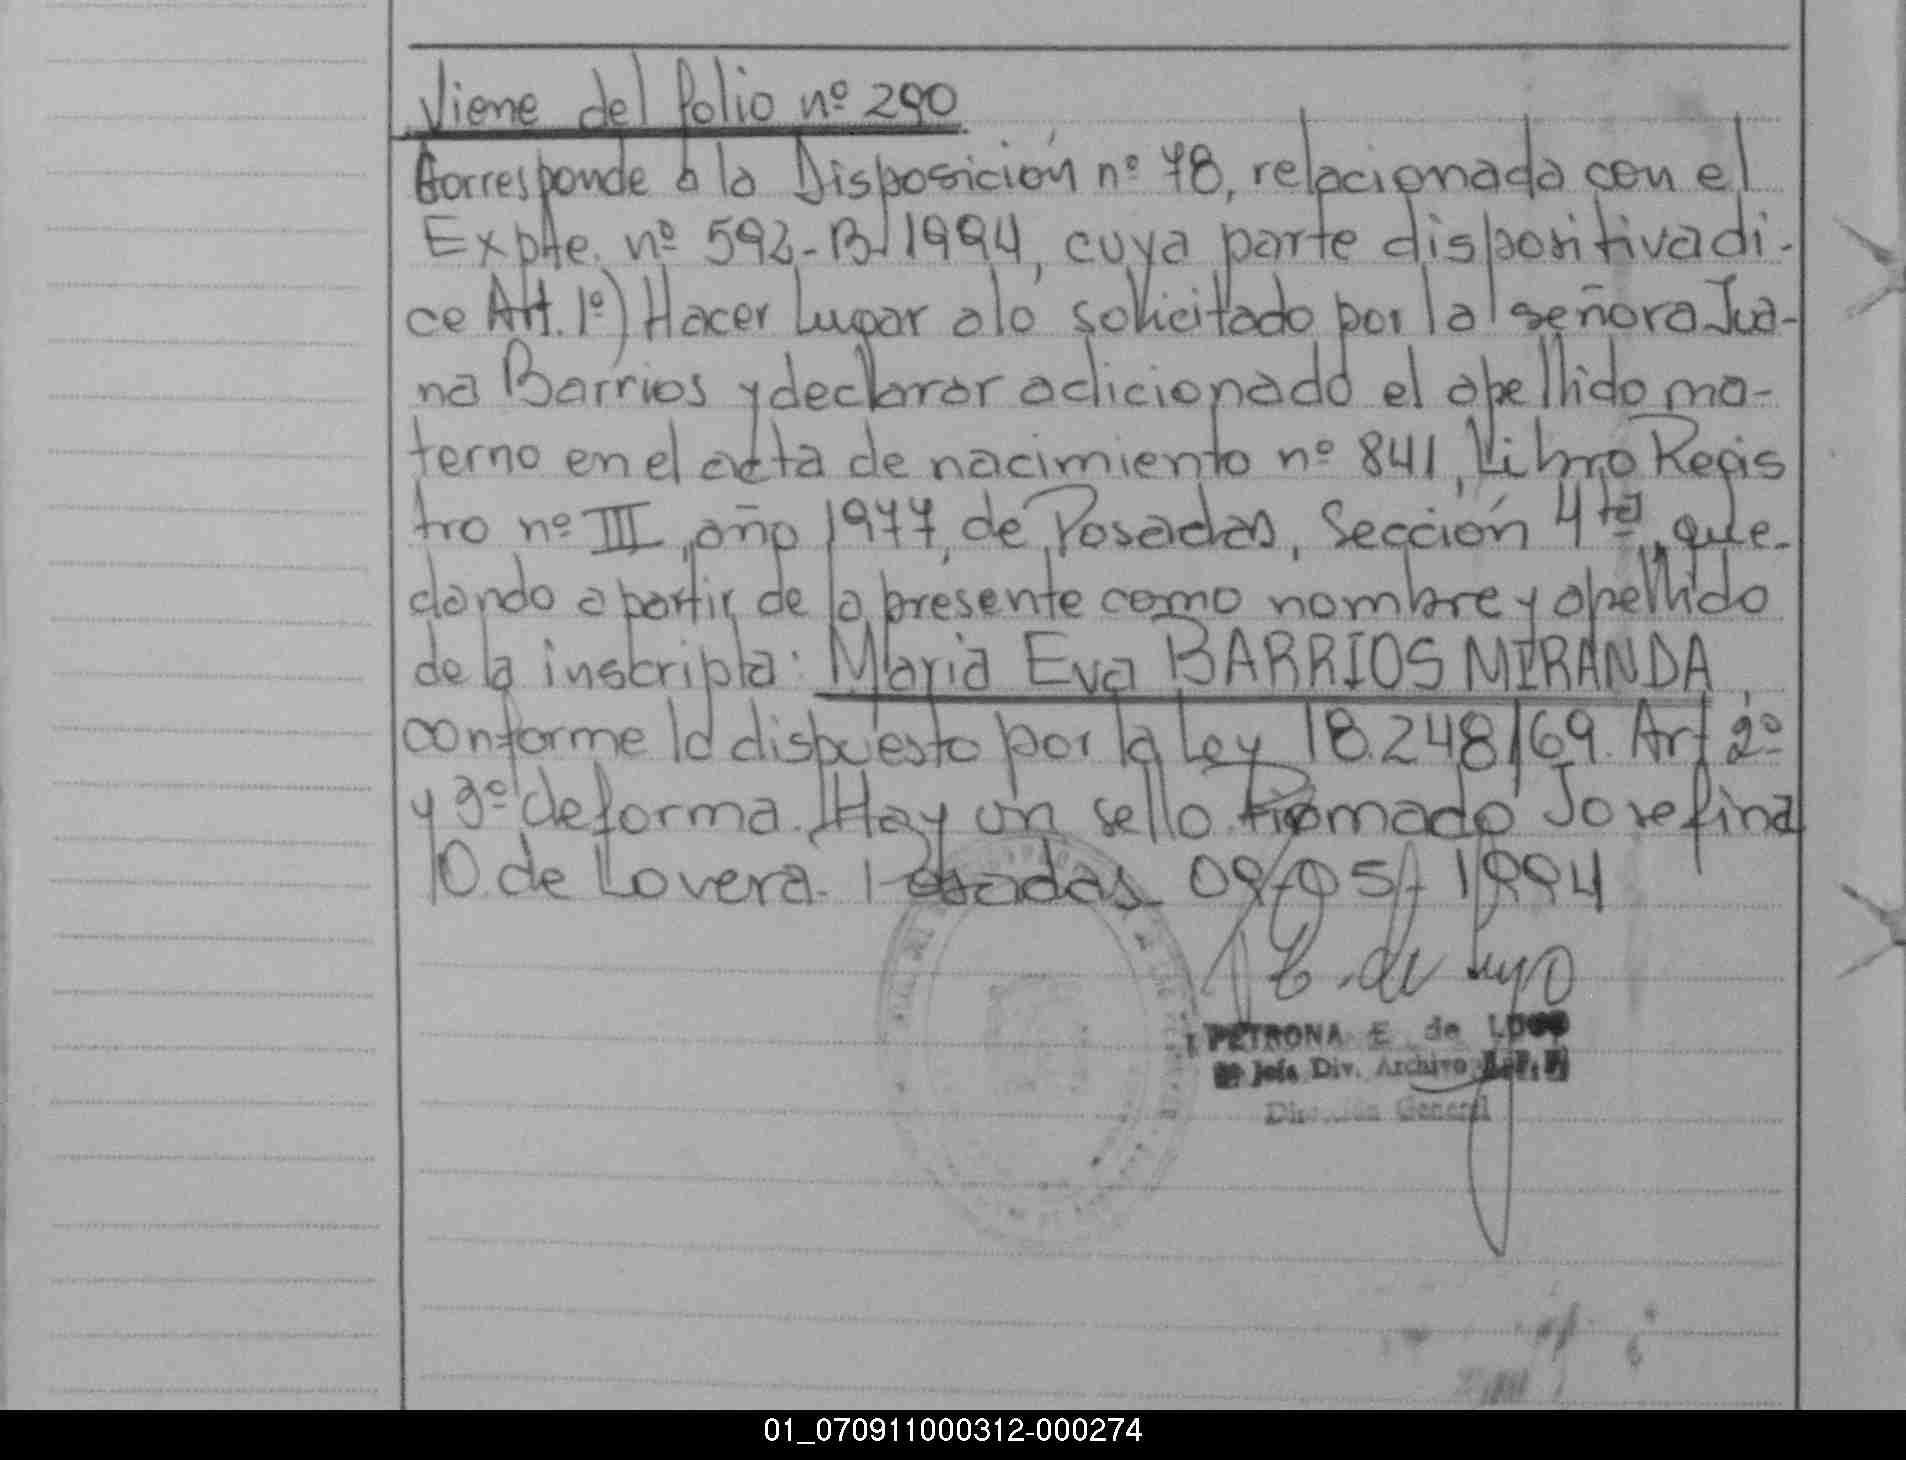 Viene del folio nº 290
Corresponde a la Disposición nº 78, relacionada con el
Expte. nº 592-B-1994, cuya parte dispositiva di-
ce Art. 1º) Hacer lugar a lo solicitado por la señora Jua-
na Barrios y declarar adicionado el apellido ma-
terno en el acta de nacimiento nº 841, Libro Regis
tro nº III, año 1977, de Posadas, Sección 4ta, que-
dando a partir de la presente como nombre y apellido
de la inscripta: Maria Eva BARRIOS MIRANDA,
conforme lo dispuesto por la Ley 18.248/69. Art 2º
y 3º de forma. Hay un sello Firmado Josefina
O. de Lovera. Posadas 09-05-1994
PETRONA E. de LUGO
Jefe Div. Archivo
Dirección General
01_070911000312-000274